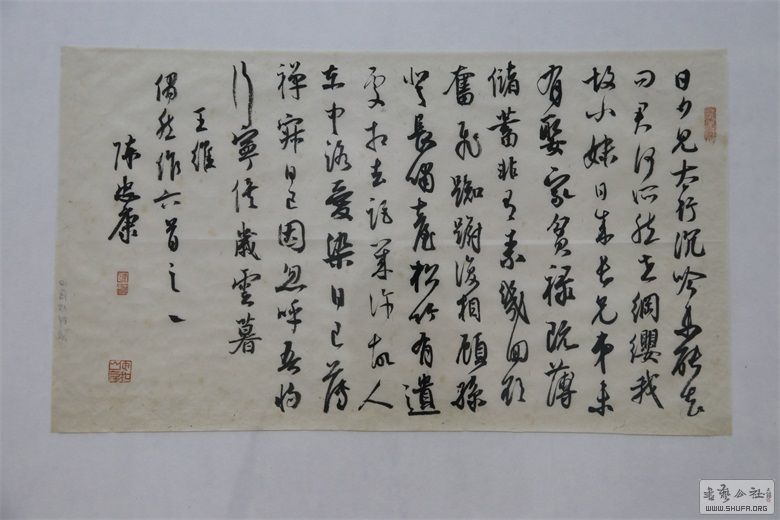 日夕見太行沉吟未能去
問君何所然世網纓我
故小妹日成長兄弟未
有娶家貧祿既薄
儲蓄非有素幾回欲
奮飛踟躕復相顧孫
登長嘯臺松竹有遺
處相去詎幾許故人
在中路愛染日已薄
禪寂日已固忽呼吾將
行寧俟歲雲暮
王維
偶然作六首之
陳忠康
書藝公社
WWW.SHUFA.ORG